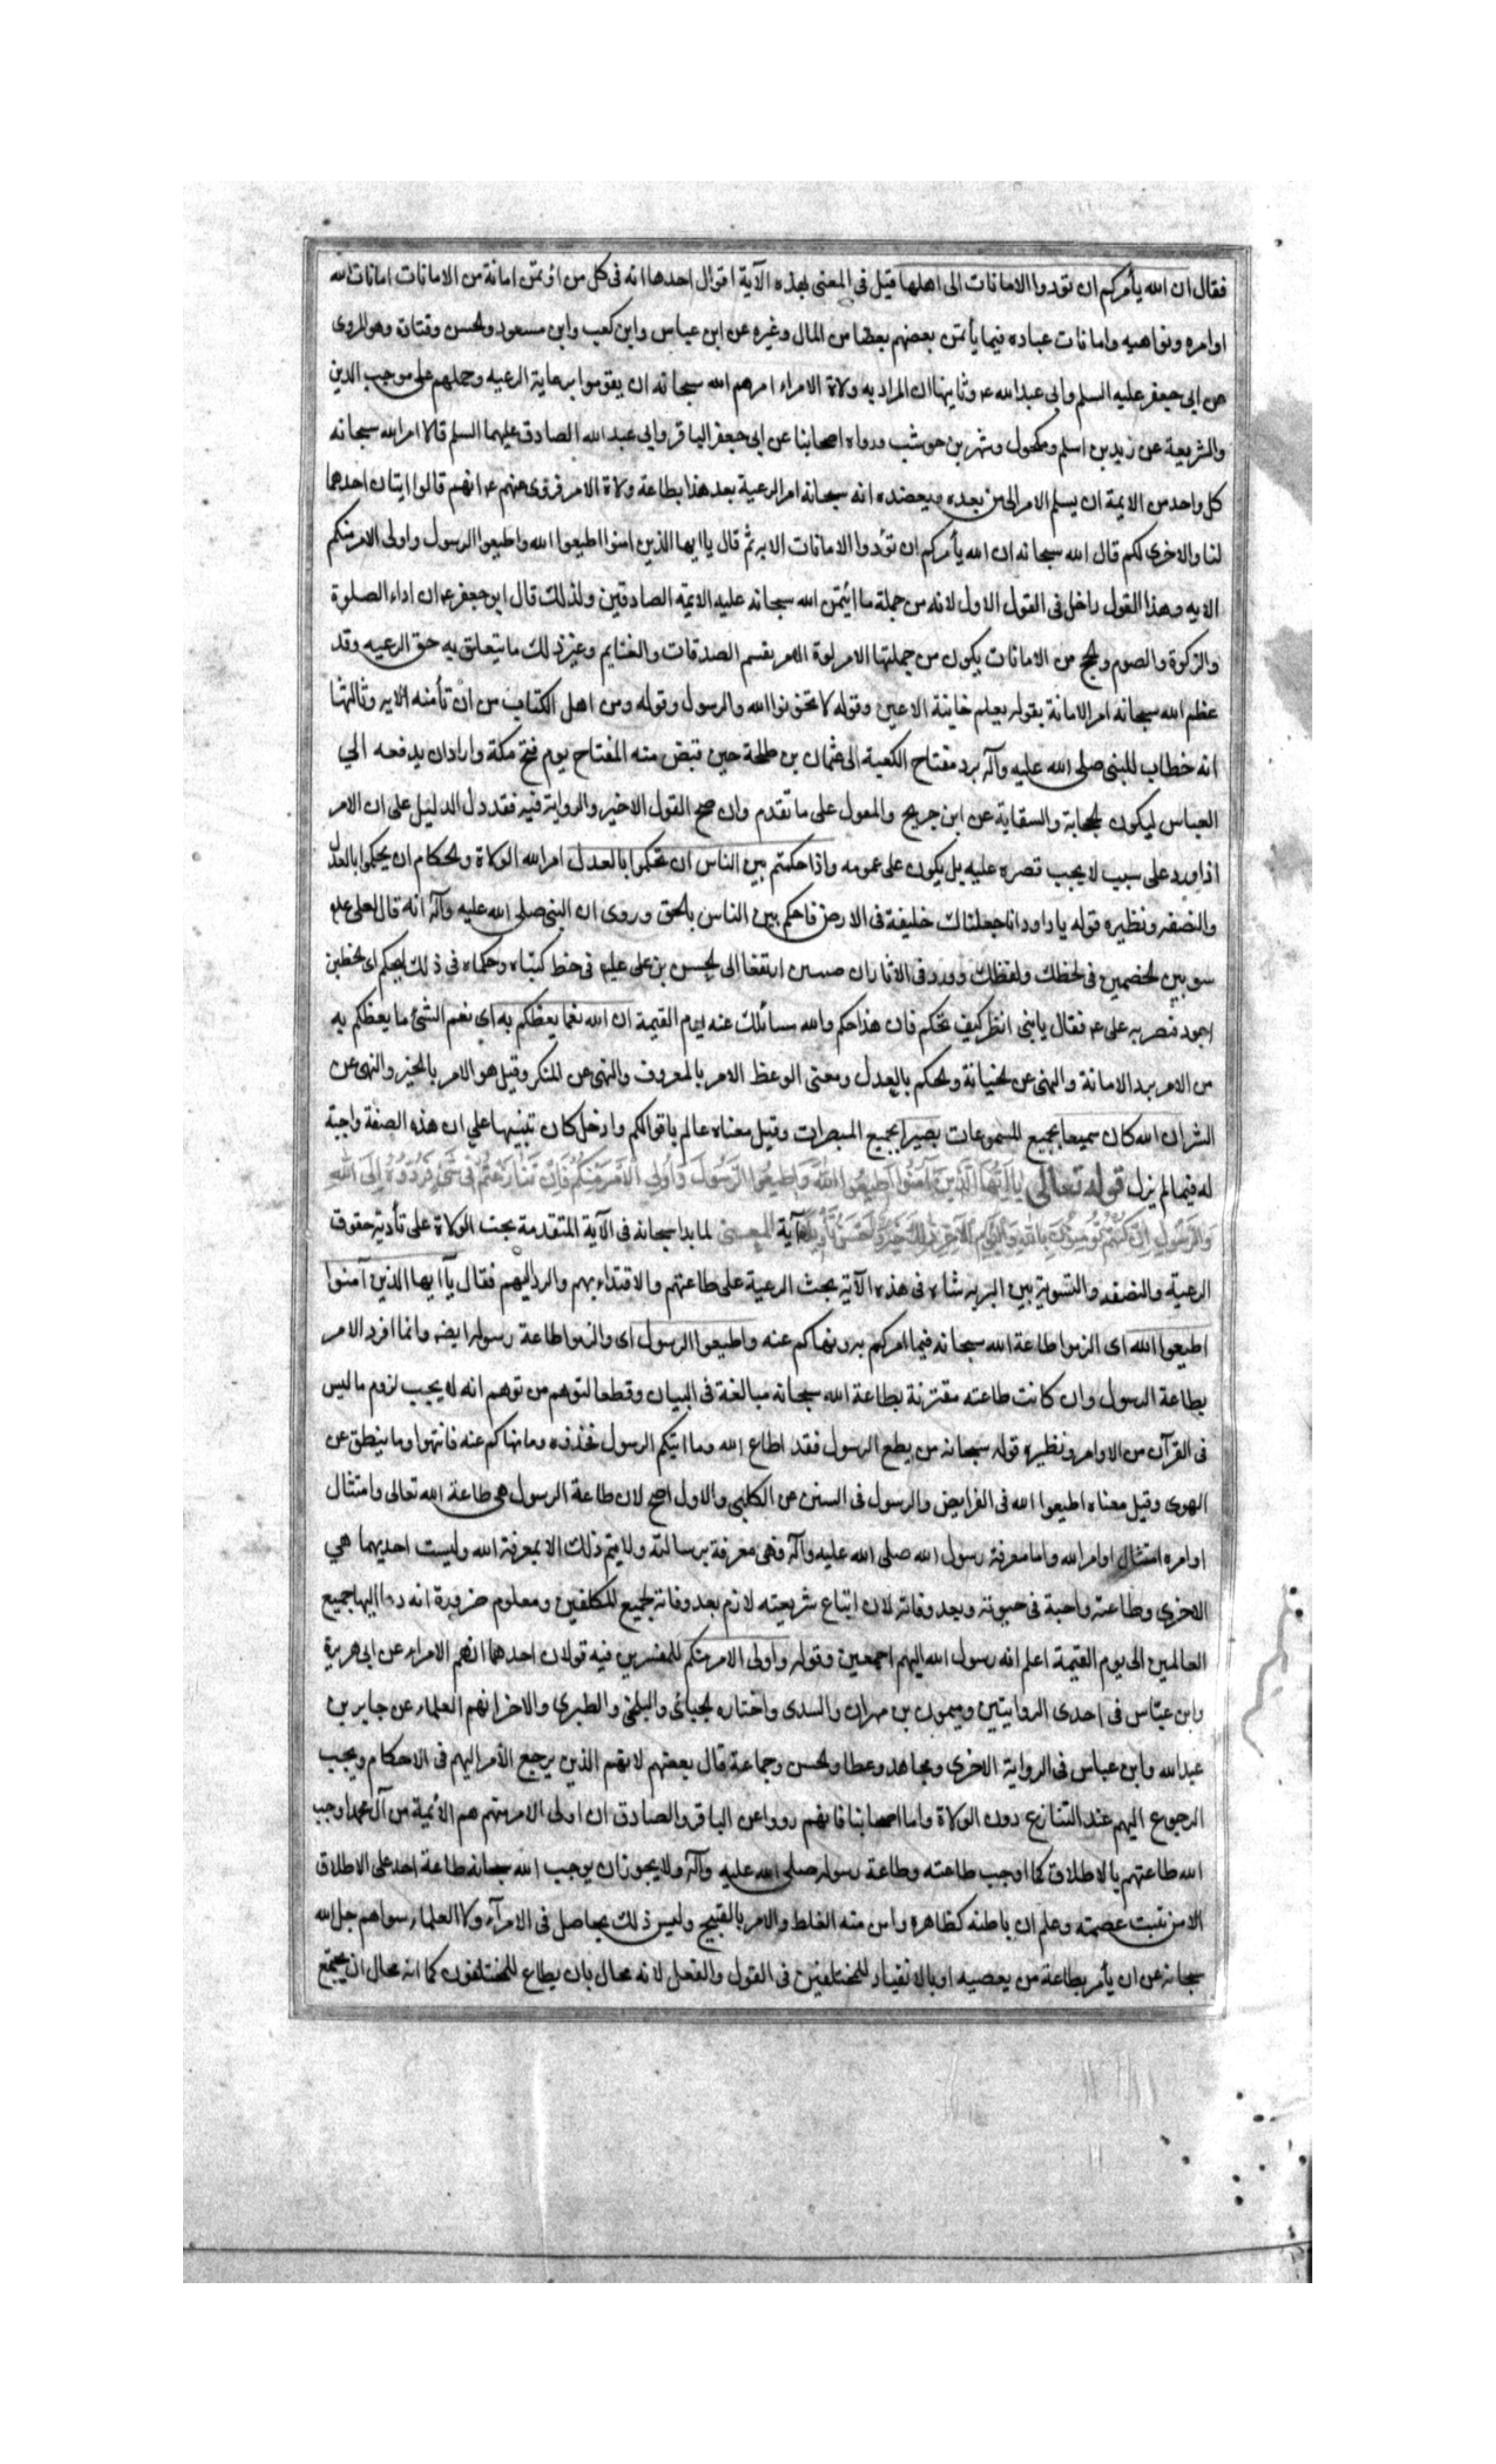 فقال ان الله يأمركم ان تؤدوا الامانات الى اهلها قيل فى المعنى بهذه الآية اقوال احدها انه فى كل من اؤتمن امانة من الامانات امانات الله
اوامره ونواهيه وامانات عباده فيما يأتمن بعضهم بعضا من المال وغيره عن ابن عباس وابن كعب وابن مسعود والحسن وقتادة وهو المروى
عن ابى جعفر عليه السلم وابى عبد الله ع وثانيها ان المراد به ولاة الامراء امرهم الله سبحانه ان يقوموا برعاية الرعيه وحملهم على موجب الدين
والشريعة عن زيد بن اسلم ومكحول وشهر بن حوشب ورواه اصحابنا عن ابى جعفر الباقر وابى عبد الله الصادق عليهما السلم قالا امر الله سبحانه
كل واحد من الايمة ان يسلم الامر الى من بعده ويعضده انه سبحانه امر الرعية بعد هذا بطاعة ولاة الامر فروى عنهم ع انهم قالوا ايتان احدهما
لنا والاخرى لكم قال الله سبحانه ان الله يأمركم ان تؤدوا الامانات الايه ثم قال يا ايها الذين امنوا اطيعوا الله واطيعوا الرسول واولى الامر منكم
الايه وهذا القول داخل فى القول الاول لانه من جملة ما ائتمن الله سبحانه عليه الايمة الصادقين ولذلك قال ابو جعفر ع ان اداء الصلوة
والزكوة والصوم والحج من الامانات يكون من جملتها الامر لوة الامر بقسم الصدقات والغنايم وغير ذلك ما يتعلق به حق الرعيه وقد
عظم الله سبحانه امر الامانة بقوله يعلم خاينة الاعين وقوله لا تخونوا الله والرسول وقوله ومن اهل الكتاب من ان تأمنه الايه وثالثها
انه خطاب للنبى صلى الله عليه وآله برد مفتاح الكعبة الى عثمان بن طلحة حين قبض منه المفتاح يوم فتح مكة واراد ان يدفعه الي
العباس ليكون الحجابة والسقاية عن ابن جريح والمعول على ما تقدم وان صح القول الاخير والرواية فيه فقد دل الدليل على ان الامر
اذا ورد على سبب لا يجب قصره عليه بل يكون على عمومه واذا حكمتم بين الناس ان تحكموا بالعدل امر الله الولاة والحكام ان يحكموا بالعدل
والنصفه ونظيره قوله يا داود انا جعلناك خليفة فى الارض فاحكم بين الناس بالحق وروى ان النبى صلى الله عليه وآله انه قال لعلى عليه
سو بين الخصمين فى لحظك ولفظك وورد فى الاثار ان صبيين ارتفعا الى الحسن بن على عليه فى خط كتباه وحكماه فى ذلك ليحكم اى الخطين
اجود فبصر به على ع فقال يا بنى انظر كيف تحكم فان هذا حكم والله سائلك عنه يوم القيمة ان الله نعما يعظكم به اى نعم الشئ ما يعظكم به
من الامر برد الامانة والنهى عن الخيانة والحكم بالعدل ومعنى الوعظ الامر بالمعروف والنهى عن المنكر وقيل هو الامر بالخير والنهى عن
الشر ان الله كان سميعا بجميع المسموعات بصيرا بجميع المبصرات وقيل معناه عالم باقوالكم وادخل كان تنبيها علي ان هذه الصفة واجبة
له فيما لم يزل قوله تعالى يَا اَيُّهَا الَّذِينَ آمَنُوا اَطِيعُوا اللهَ وَاَطِيعُوا الرَّسُولَ وَاُولِى الْاَمْرِ مِنْكُمْ فَاِنْ تَنَازَعْتُمْ فِى شَىْءٍ فَرُدُّوهُ اِلَى اللهِ
وَالرَّسُولِ اِنْ كُنْتُمْ تُؤْمِنُونَ بِاللهِ وَالْيَوْمِ الْآخِرِ ذٰلِكَ خَيْرٌ وَاَحْسَنُ تَأْوِيلًا آية المعنى لما بدا سبحانه فى الآية المتقدمة بحث الولاة على تأدية حقوق
الرعية والنصفه والتسوية بين البريه ثناه فى هذه الآية بحث الرعية على طاعتهم والاقتداء بهم والرد اليهم فقال يآ ايها الذين آمنوا
اطيعوا الله اى الزموا طاعة الله سبحانه فيما امركم به ونهاكم عنه واطيعوا الرسول اى والزموا طاعة رسوله ايضه وانما افرد الامر
بطاعة الرسول وان كانت طاعته مقترنة بطاعة الله سبحانه مبالغة فى البيان وقطعا لتوهم من توهم انه لا يجب لزوم ما ليس
فى القرآن من الاوامر ونظيره قوله سبحانه من يطع الرسول فقد اطاع الله وما اتيكم الرسول فخذوه وما نهاكم عنه فانتهوا وما ينطق عن
الهوى وقيل معناه اطيعوا الله فى الفرايض والرسول فى السنن عن الكلبى والاول اصح لان طاعة الرسول هى طاعة الله تعالى وامتثال
اوامره امتثال اوامر الله واما معرفة رسول الله صلى الله عليه وآله فهى معرفة برسالته ولا يتم ذلك الا بمعرفة الله وليست احديهما هي
الاخرى وطاعته واجبة فى حيوته وبعد وفاته لان اتباع شريعته لازم بعد وفاته لجميع المكلفين ومعلوم ضرورة انه دعا اليها جميع
العالمين الى يوم القيمة اعلم انه رسول الله اليهم اجمعين وقوله واولى الامر منكم للمفسرين فيه قولان احدهما انهم الامراء عن ابى هريرة
وابن عبّاس فى احدى الروايتين وميمون بن مهران والسدى واختاره الجبائى والبلخى والطبرى والاخر انهم العلماء عن جابر بن
عبد الله وابن عباس فى الرواية الاخرى ومجاهد وعطا والحسن وجماعة قال بعضهم لانهم الذين يرجع الأمر اليهم فى الاحكام ويجب
الرجوع اليهم عند التنازع دون الولاة واما اصحابنا فانهم رووا عن الباقر والصادق ان اولى الامر منهم هم الأئمية من آل محمد اوجب
الله طاعتهم بالاطلاق كما اوجب طاعته وطاعة رسوله صلى الله عليه وآله ولا يجوز ان يوجب الله سبحانه طاعة احد على الاطلاق
الا من ثبت عصمته وعلم ان باطنه كظاهره وامن منه الغلط والامر بالقبيح وليس ذلك بحاصل فى الامرآء ولا العلماء سواهم جل الله
سبحانه عن ان يأمر بطاعة من يعصيه او بالانقياد للمختلفين فى القول والفعل لانه محال بان يطاع المختلفون كما انه محال ان يجتمع